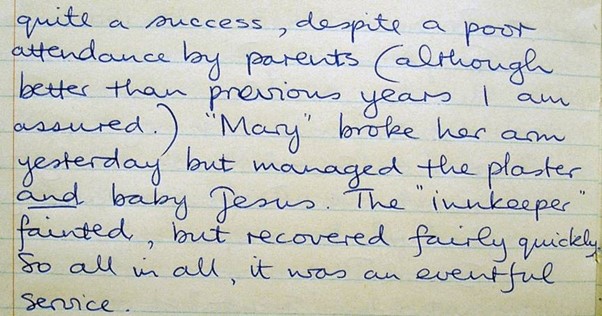 quite a success, despite a poor
attendance by parents (although
better than previous years I am
assured.) "Mary" broke her arm
yesterday but managed the plaster
and baby Jesus. The "innkeeper"
fainted, but recovered fairly quickly.
So all in all, it was an eventful
service.